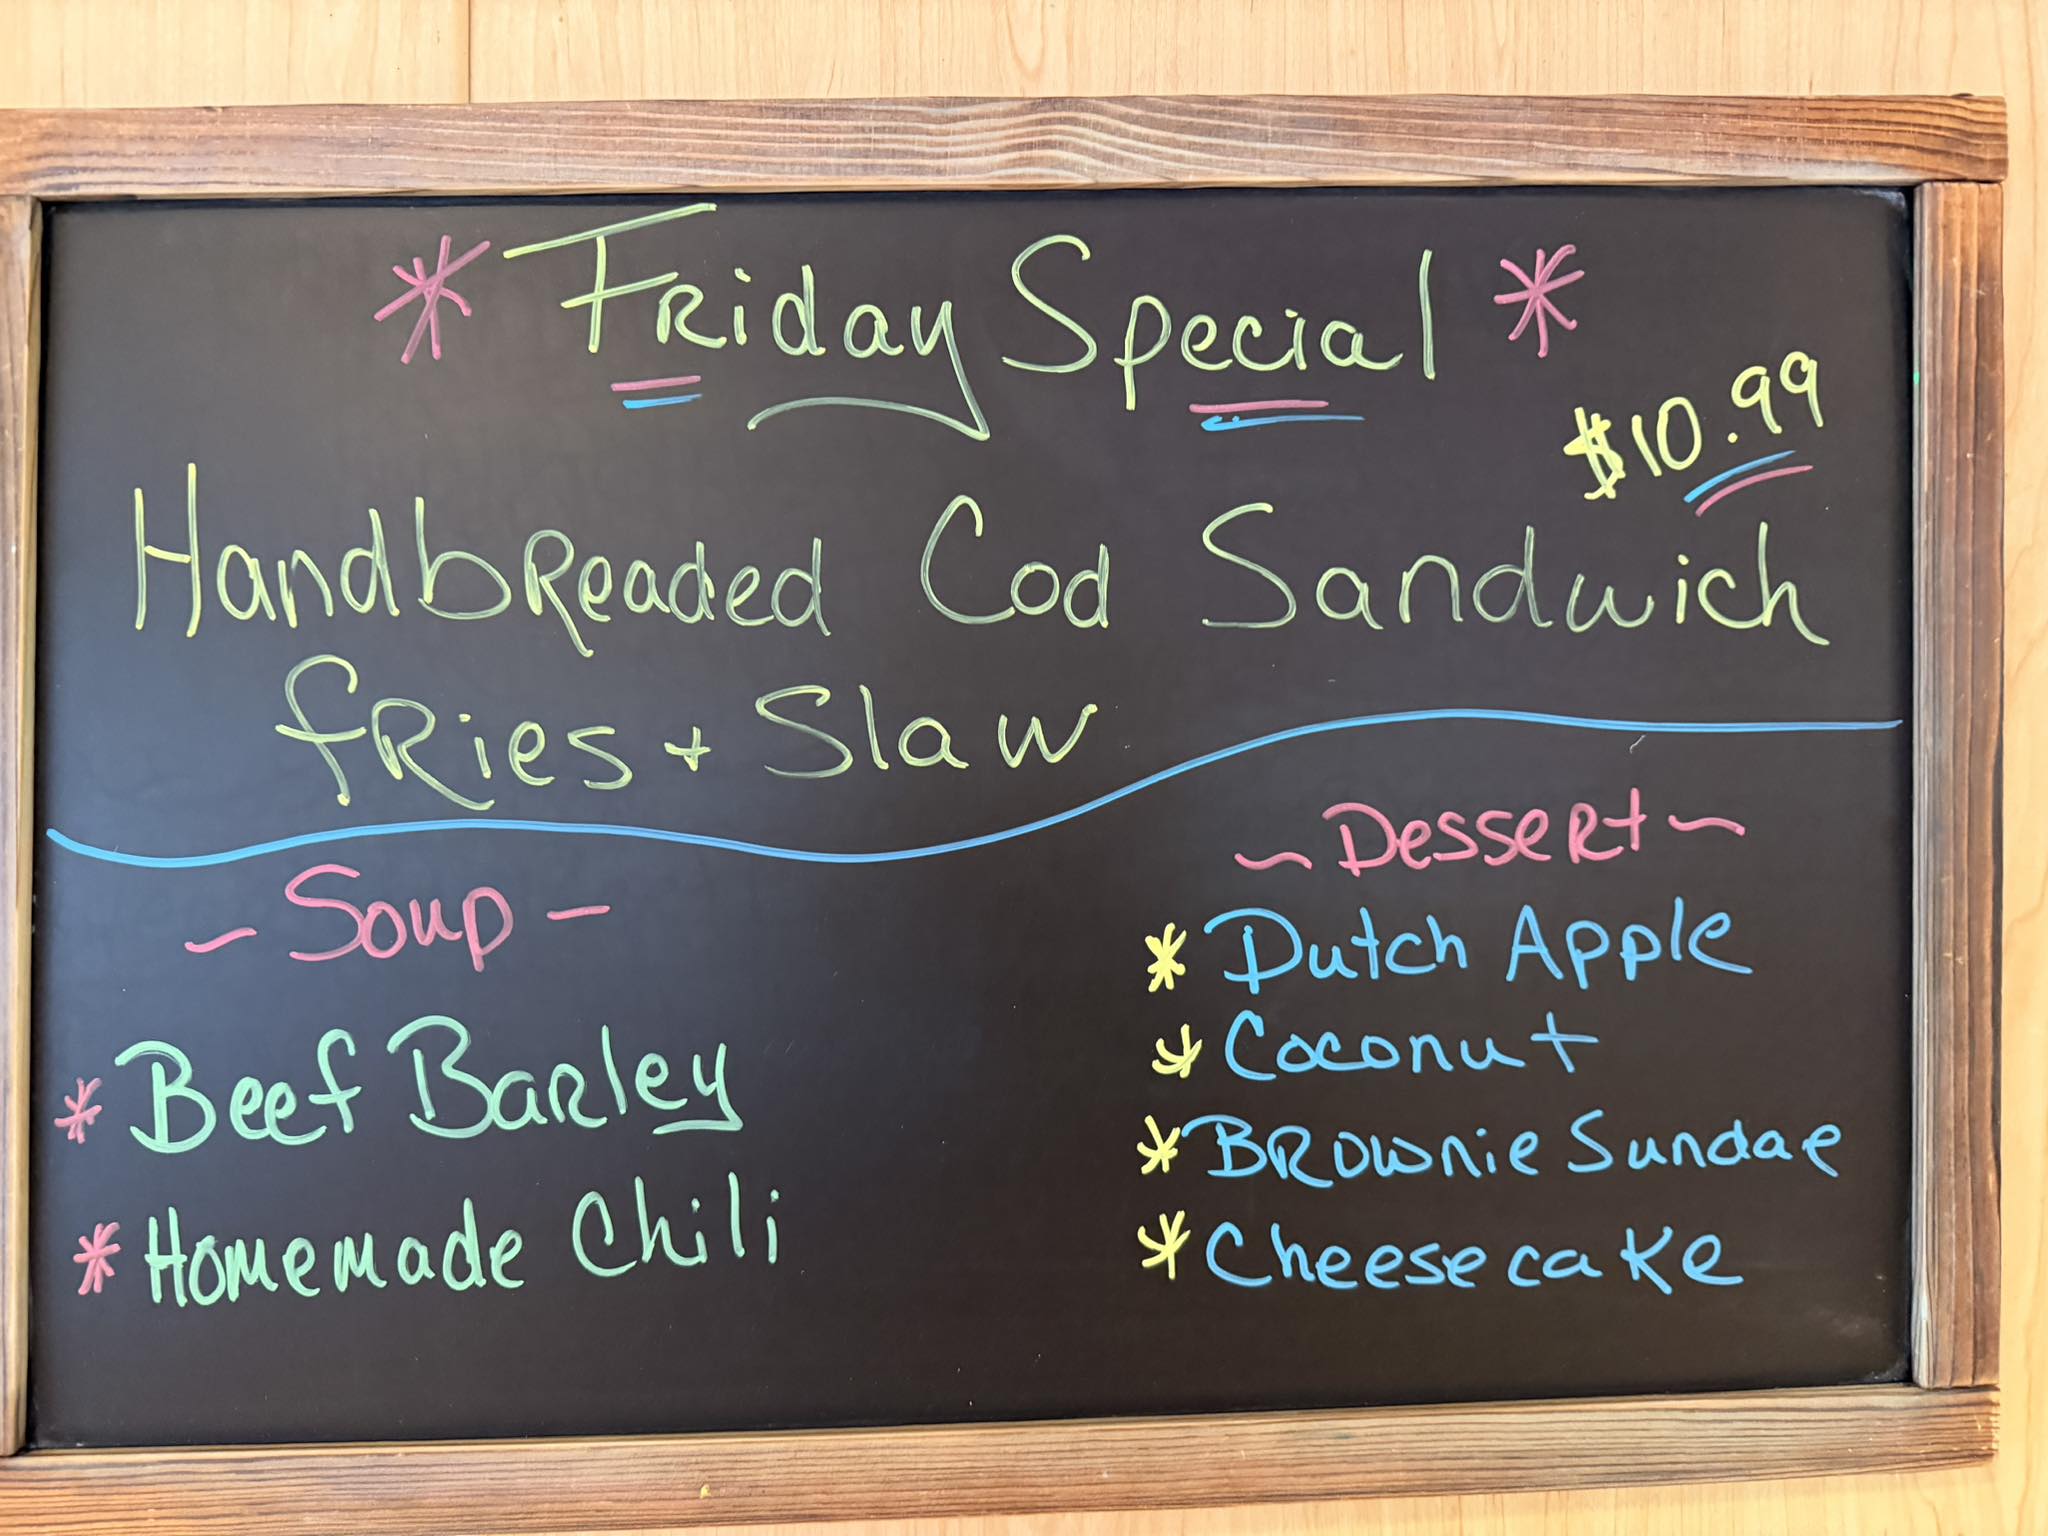 * Friday Special *
$10.99
Handbreaded Cod Sandwich
fries + Slaw
~ Soup -
* Beef Barley
* Homemade Chili
~ Dessert ~
* Dutch Apple
* Coconut
* Brownie Sundae
* Cheesecake